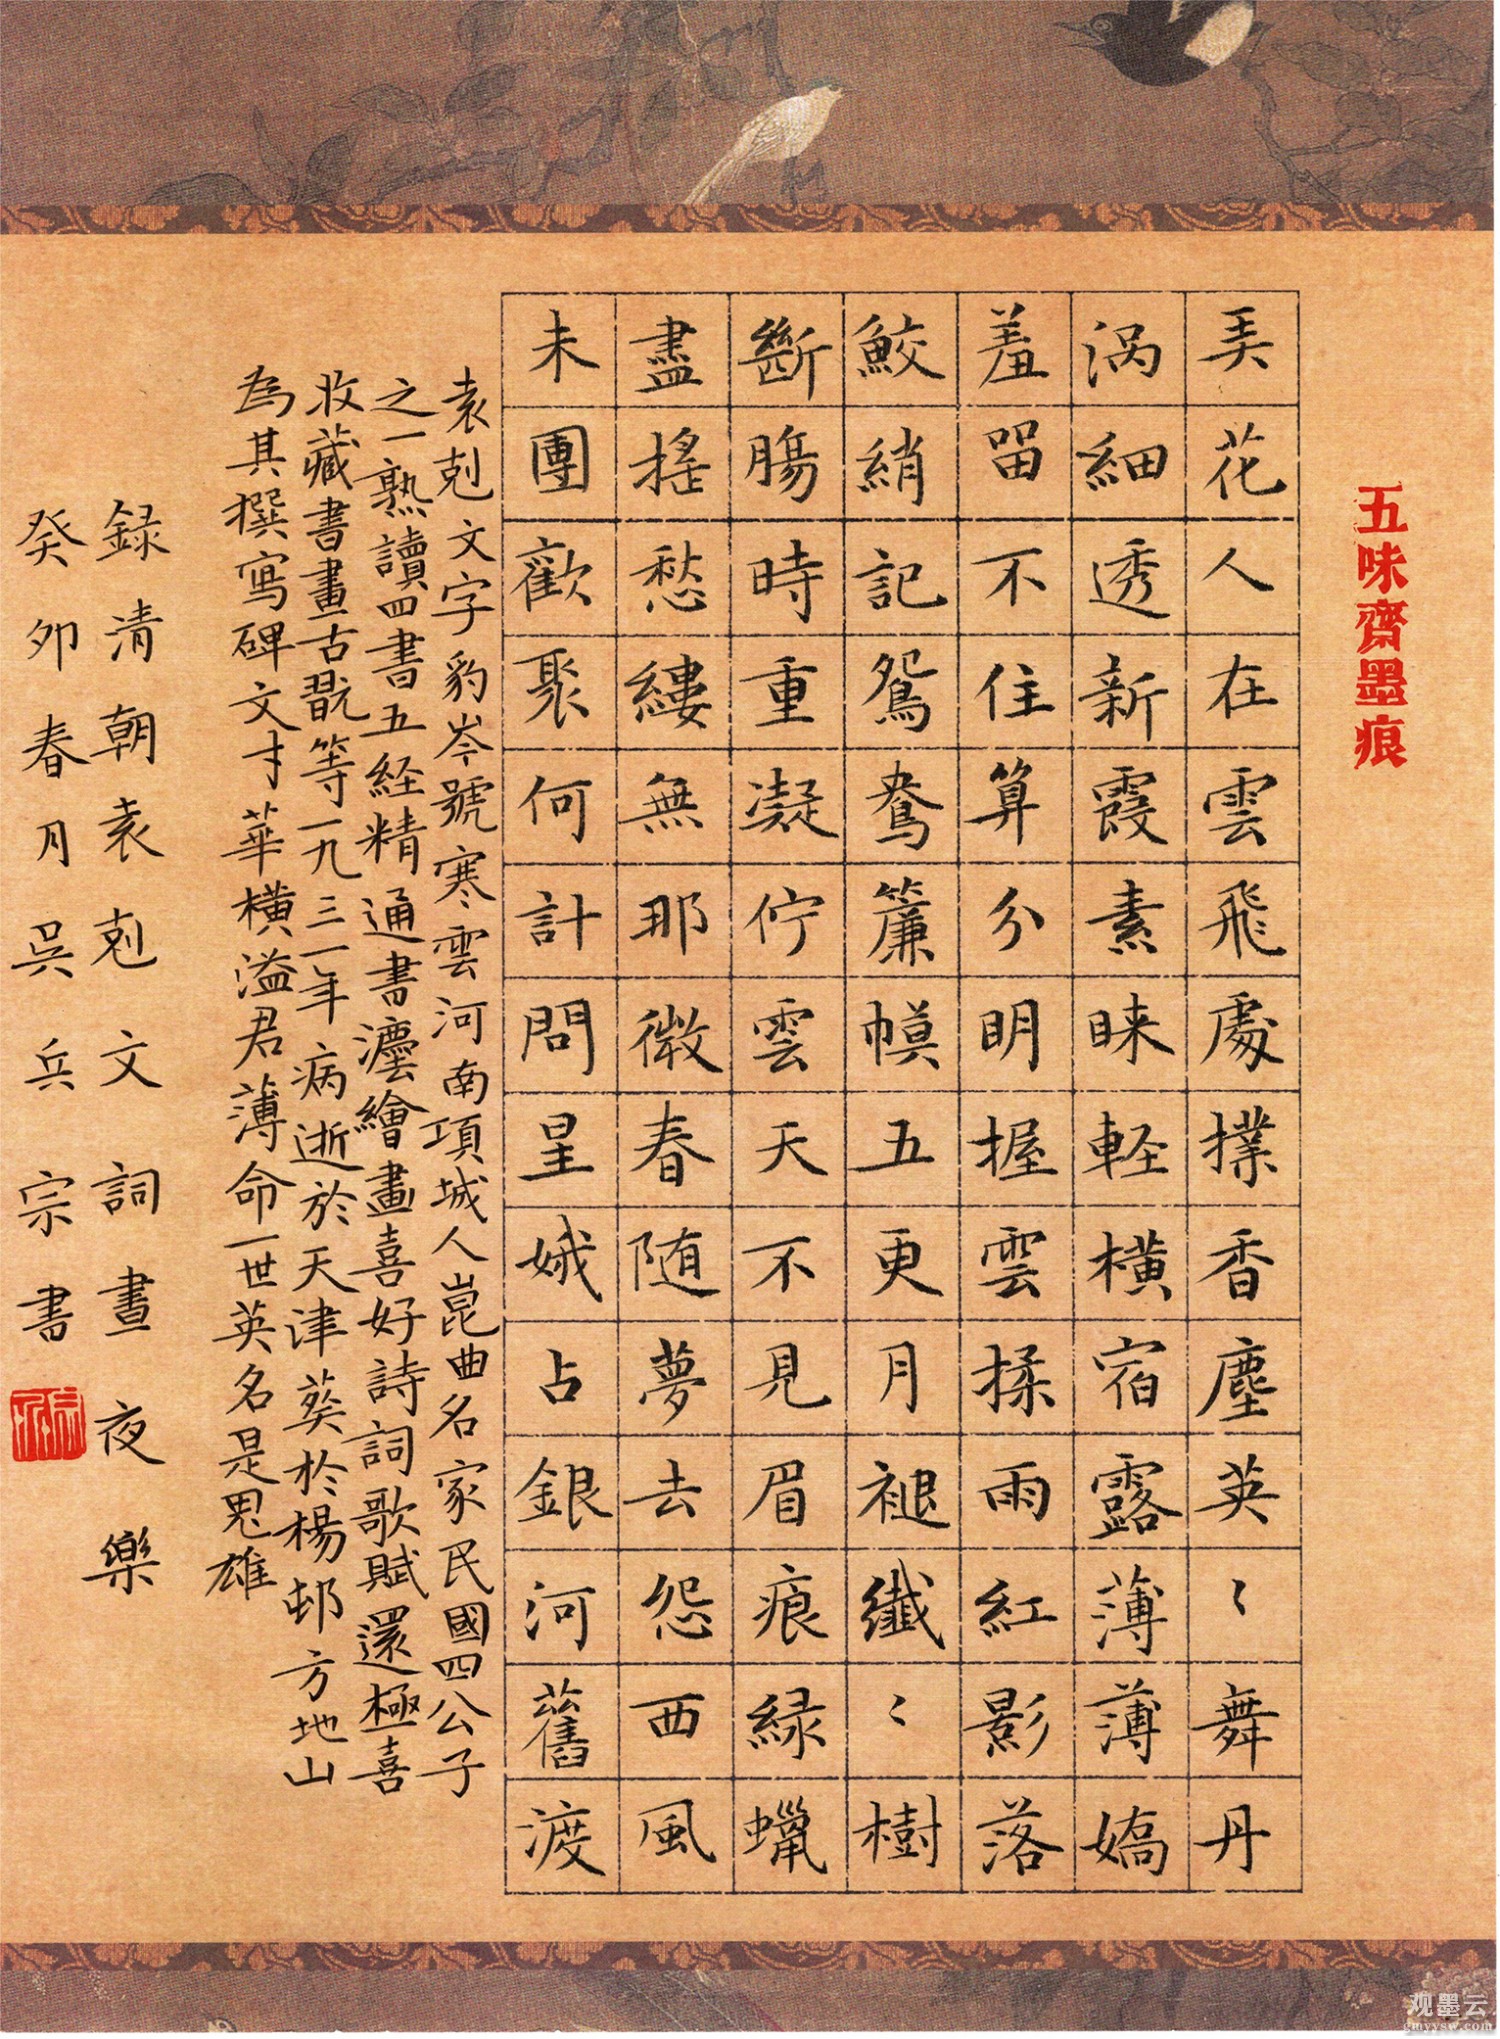 五味齋墨痕
弄花人在雲飛處撲香塵英〻舞丹
渦細透新霞素睐輕橫宿露薄薄嬌
羞留不住算分明握雲揉雨紅影落
鮫綃記鴛鴦簾幙五更月褪纖〻樹
斷腸時重凝佇雲天不見眉痕緑蠟
盡搖愁縷無那微春随夢去怨西風
未團歡聚何計問星娥占銀河舊渡
袁剋文字豹岑號寒雲河南項城人崑曲名家民國四公子
之一熟讀四書五経精通書灋繪畫喜好詩詞歌賦還極喜
收藏書畫古翫等一九三一年病逝於天津葬於楊邨方地山
為其撰寫碑文才華橫溢君薄命一世英名是鬼雄
録清朝袁剋文詞晝夜樂
癸卯春月吳兵宗書
观墨云
gmyysw.com